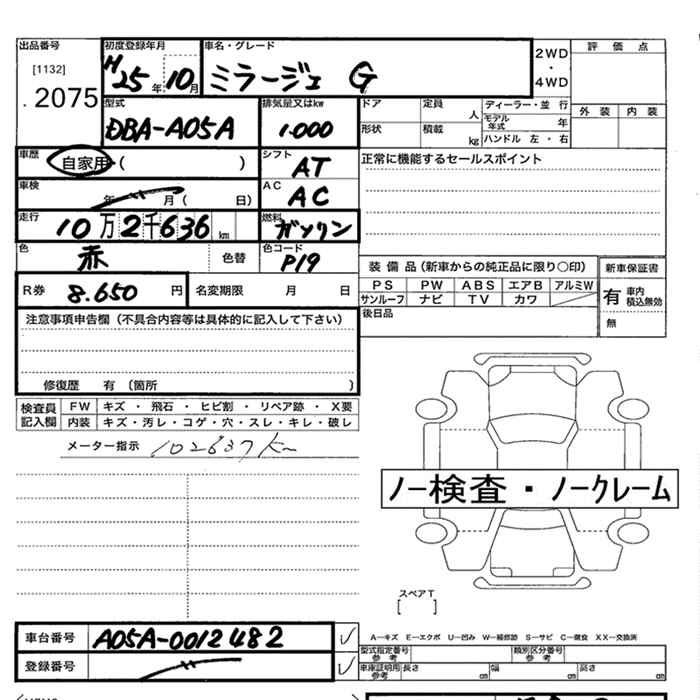 出品番号 初度登録年月 車名・グレード 2WD・4WD 評価点
[1132] H25年10月 ミラージュ G
2075
型式 排気量又はkw ドア 定員 人 ディーラー・並行 外装 内装
DBA-A05A 1.000 モデル年式 年
形状 積載 kg ハンドル 左・右
車歴 自家用 ( ) シフト AT 正常に機能するセールスポイント
車検 年 〃 月 ( 日) AC AC
走行 10万2千636km 燃料 ガソリン
色 赤 色替 色コード P19
装備品(新車からの純正品に限り○印) 新車保証書
R券 8.650円 名変期限 月 日 PS PW ABS エアB アルミW 有 車内 積込無効
サンルーフ ナビ TV カワ
注意事項申告欄(不具合内容等は具体的に記入して下さい) 後日品 無
修復歴 有 (箇所 )
検査員記入欄 FW キズ・飛石・ヒビ割・リペア跡・X要
内装 キズ・汚レ・コゲ・穴・スレ・キレ・破レ
メーター指示 102637km
ノー検査・ノークレーム
スペアT
[ ]
車台番号 A05A-0012482 A―キズ E―エクボ U―凹み W―補修跡 S―サビ C―腐食 XX―交換済
型式指定番号 参考 類別区分番号 参考
登録番号 〃 車庫証明用 参考 長さ cm 幅 cm 高さ cm